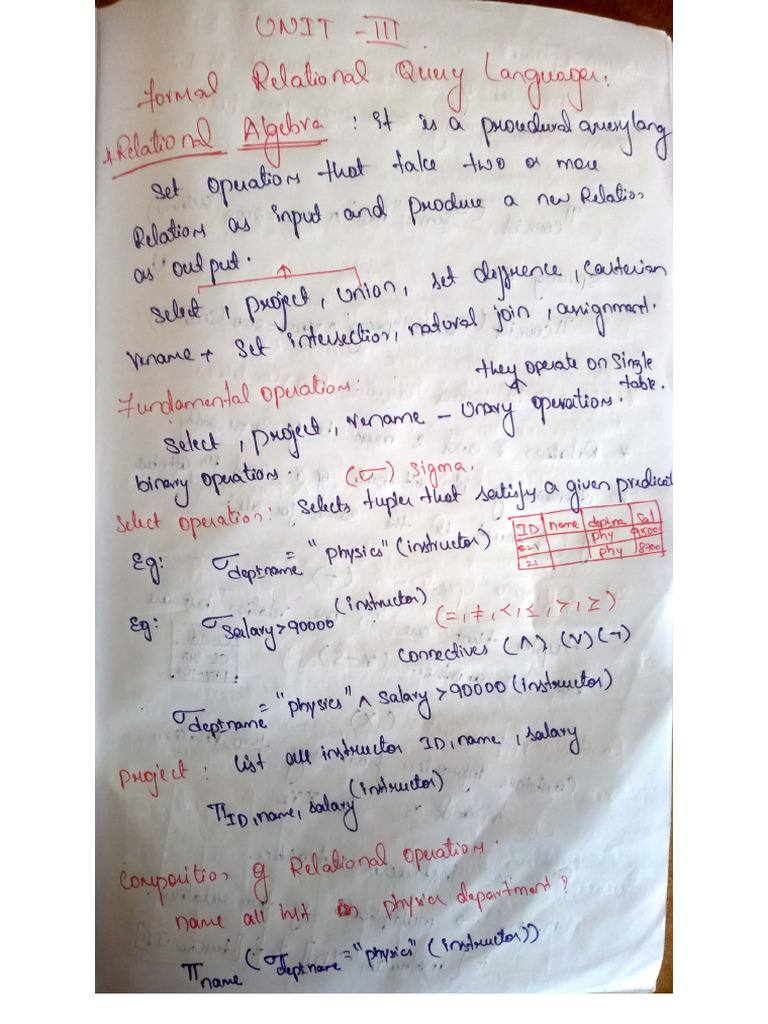 UNIT - III
Formal Relational Query Languages:
* Relational Algebra : it is a procedural query lang
set operations that take two or more
Relations as input and produce a new Relation
as output.
select, project, union, set diffrence, Cartesian
rename + set intersection, natural join, assignment.
they operate on single
table.
Fundamental operations:
select, project, rename - unary operations.
binary operations. (σ) sigma.
select operation: selects tuples that satisfy a given predicate
ID name deptna sal
phy 9500
21 phy 8700
Eg: σ deptname = "physics" (instructor)
Eg: σ salary > 90000 (instructor)
(=, ≠, <, ≤, >, ≥)
connectives (∧), (∨) (¬)
σ deptname = "physics" ∧ salary > 90000 (instructor)
project: list all instructor ID, name, salary
π ID, name, salary (instructor)
Composition of Relational operations.
name all inst in physics department?
π name (σ deptname = "physics" (instructor)).